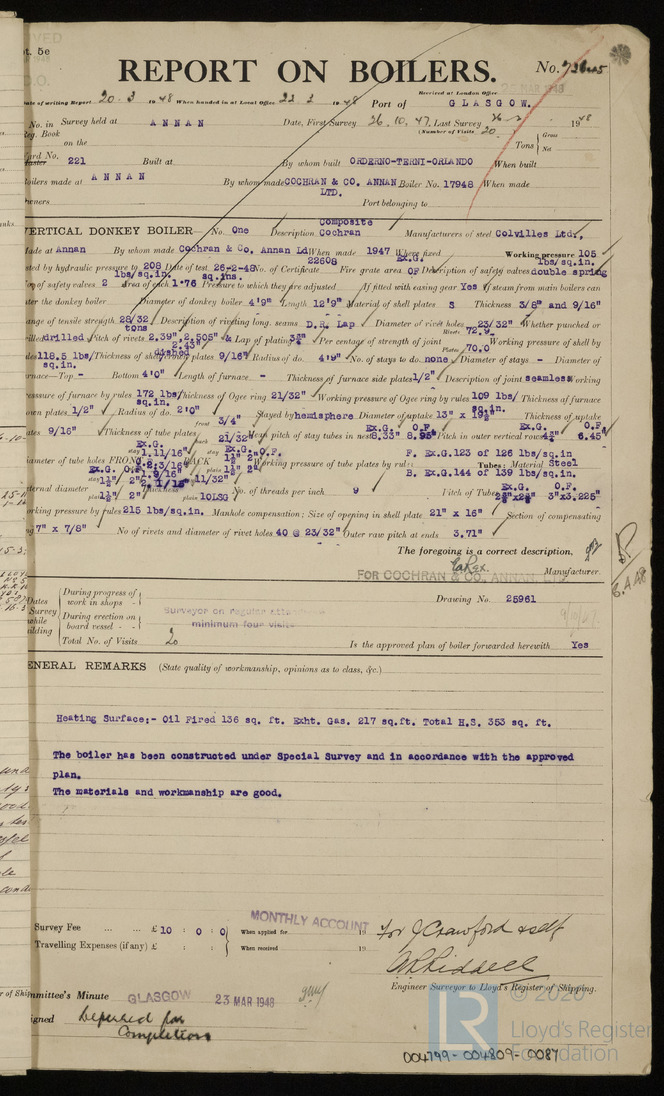 pt. 5c
REPORT ON BOILERS.
No.
Date of writing Report 20.3 1948 When handed in at Local Office 22 3 1948 Port of GLASGOW.
Received at London Office
23 MAR 1948
No. in Survey held at ANNAN Date, First Survey 26.10.47. Last Survey 1948
Reg. Book (Number of Visits 20)
on the Tons Gross Net
221 Built at By whom built ORDERNO-TERNI-ORLANDO When built
Boilers made at ANNAN By whom made COCHRAN & CO. ANNAN LTD. Boiler No. 17948 When made
Owners Port belonging to
VERTICAL DONKEY BOILER No. One Description Composite Cochran Manufacturers of steel Colvilles Ltd.,
Made at Annan By whom made Cochran & Co. Annan Ld When made 1947 Where fixed Working pressure 105 lbs/sq.in.
tested by hydraulic pressure to 208 lbs/sq.in. Date of test 26-2-48 No. of Certificate 22608 Fire grate area Ex.G. OF Description of safety valves double spring
No. of safety valves 2 Area of each 1.76 sq.ins. Pressure to which they are adjusted If fitted with easing gear Yes If steam from main boilers can
enter the donkey boiler Diameter of donkey boiler 4'9" Length 12'9" Material of shell plates S Thickness 3/8" and 9/16"
Range of tensile strength 28/32 tons Description of riveting long. seams D.R. Lap Diameter of rivet holes 23/32" Whether punched or
drilled drilled Pitch of rivets 2.39" 2.505" & 2.43" Lap of plating Per centage of strength of joint Rivets 72.9 Plates 70.0 Working pressure of shell by
rules 118.5 lbs/sq.in. Thickness of shell crown plates dished 9/16" Radius of do. 4'9" No. of stays to do. none Diameter of stays - Diameter of
furnace—Top - Bottom 4'0" Length of furnace - Thickness of furnace side plates 1/2" Description of joint seamless Working
pressure of furnace by rules 172 lbs/sq.in. Thickness of Ogee ring 21/32" Working pressure of Ogee ring by rules 109 lbs/sq.in. Thickness of furnace
crown plates 1/2" Radius of do. 2'0" Stayed by hemisphere Diameter of uptake 13" x 19½ Thickness of uptake
plates 9/16" Thickness of tube plates front 3/4" back 21/32" Mean pitch of stay tubes in nests Ex.G. 8.33" O.F. 8.95" Pitch in outer vertical rows Ex.G. O.F. 6.45
Diameter of tube holes FRONT BACK Working pressure of tube plates by rules F. Ex.G.123 of 126 lbs/sq.in Tubes: Material Steel
B. Ex.G.144 of 139 lbs/sq.in.
external diameter thickness 11/32" 10LSG No. of threads per inch 9 Pitch of Tubes Ex.G. O.F. 3"x3.225"
Working pressure by rules 215 lbs/sq.in. Manhole compensation: Size of opening in shell plate 21" x 16" Section of compensating
ring 7" x 7/8" No of rivets and diameter of rivet holes 40 @ 23/32" Outer row pitch at ends 3.71"
The foregoing is a correct description,
FOR COCHRAN & CO. ANNAN, LTD. Manufacturer.
Dates of Survey while building
During progress of work in shops - - Drawing No. 25961
During erection on board vessel - - Surveyor on regular attendance minimum four visits
Total No. of Visits 20 Is the approved plan of boiler forwarded herewith Yes
GENERAL REMARKS (State quality of workmanship, opinions as to class, &c.)
Heating Surface;- Oil Fired 136 sq. ft. Exht. Gas. 217 sq.ft. Total H.S. 353 sq. ft.
The boiler has been constructed under Special Survey and in accordance with the approved
plan.
The materials and workmanship are good.
MONTHLY ACCOUNT
Survey Fee ... ... £10 : 0 : 0 When applied for 19
Travelling Expenses (if any) £ : : When received 19
For J Crawford & self
A.R. Riddell
Engineer Surveyor to Lloyd's Register of Shipping.
Committee's Minute GLASGOW 23 MAR 1948
Signed Deferred for
Completion
© 2020
LR
Lloyd's Register
Foundation
004799-004809-0087